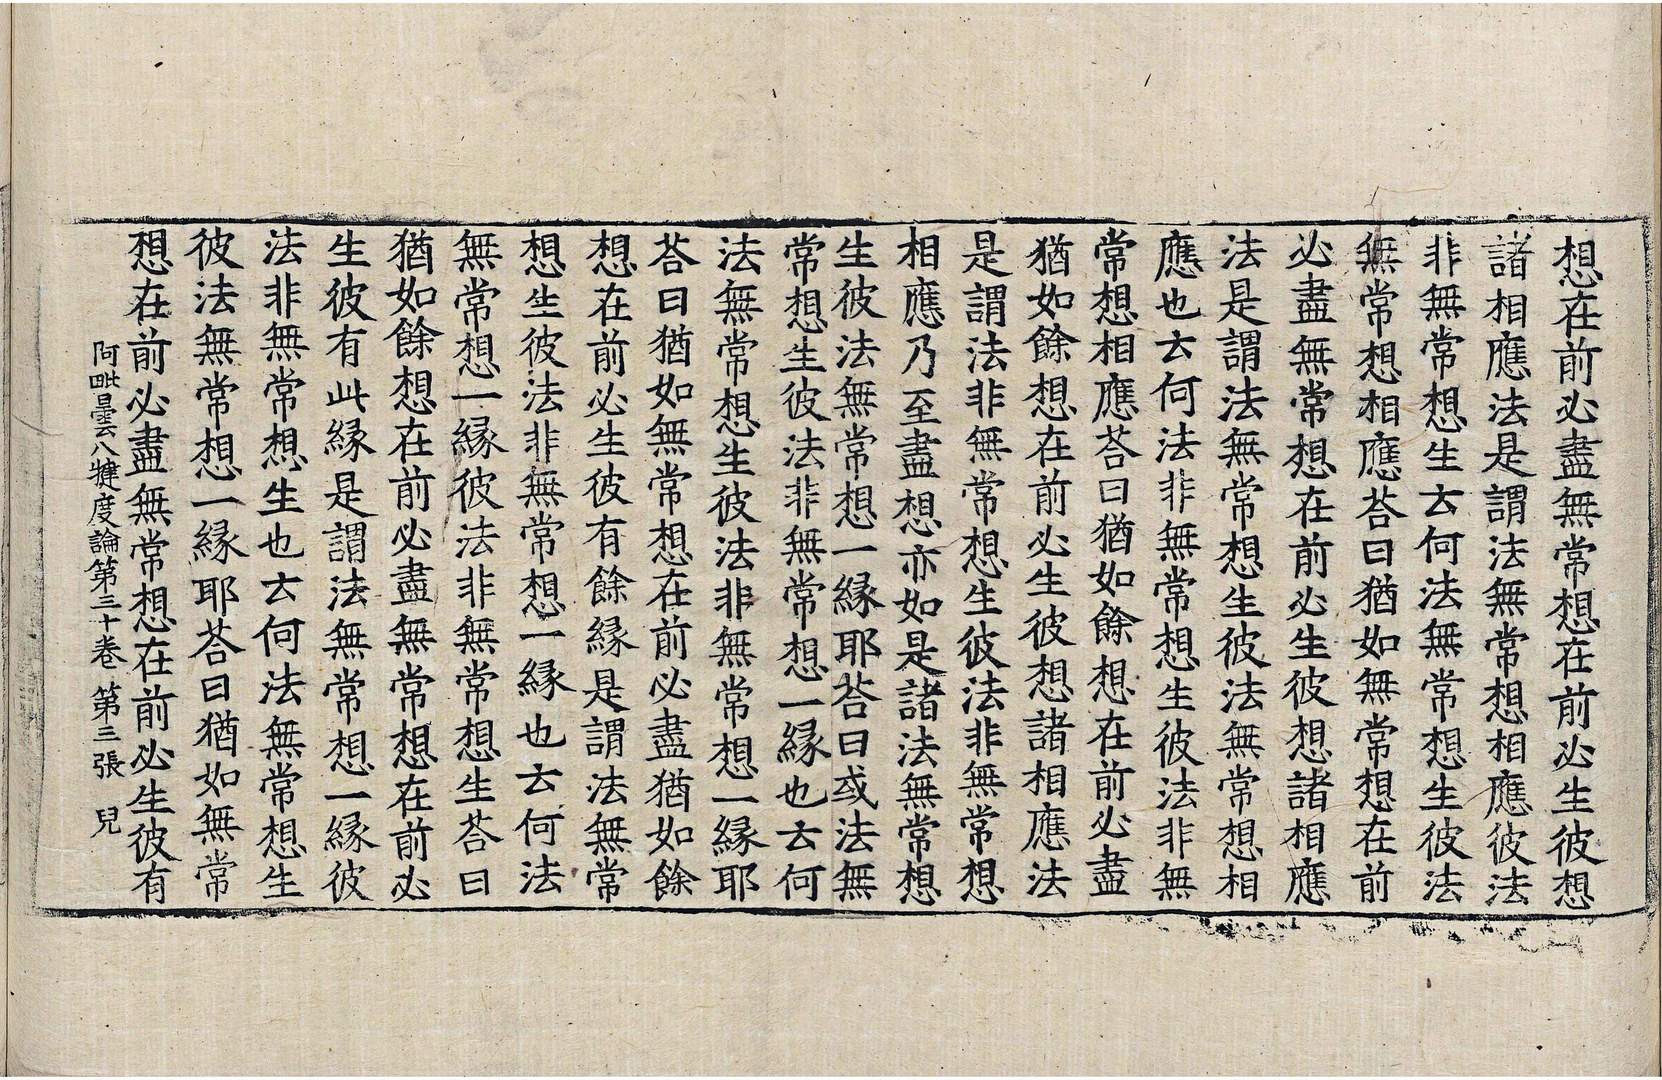 想在前必盡無常想在前必生彼想
諸相應法是謂法無常想相應彼法
非無常想生云何法無常想生彼法
無常想相應荅曰猶如無常想在前
必盡無常想在前必生彼想諸相應
法是謂法無常想生彼法無常想相
應也云何法非無常想生彼法非無
常想相應荅曰猶如餘想在前必盡
猶如餘想在前必生彼想諸相應法
是謂法非無常想生彼法非無常想
相應乃至盡想亦如是諸法無常想
生彼法無常想一緣耶荅曰或法無
常想生彼法非無常想一緣也云何
法無常想生彼法非無常想一緣耶
荅曰猶如無常想在前必盡猶如餘
想在前必生彼有餘緣是謂法無常
想生彼法非無常想一緣也云何法
無常想一緣彼法非無常想生荅曰
猶如餘想在前必盡無常想在前必
生彼有此緣是謂法無常想一緣彼
法非無常想生也云何法無常想生
彼法無常想一緣耶荅曰猶如無常
想在前必盡無常想在前必生彼有
阿毗曇八犍度論第三十卷 第三張 兒